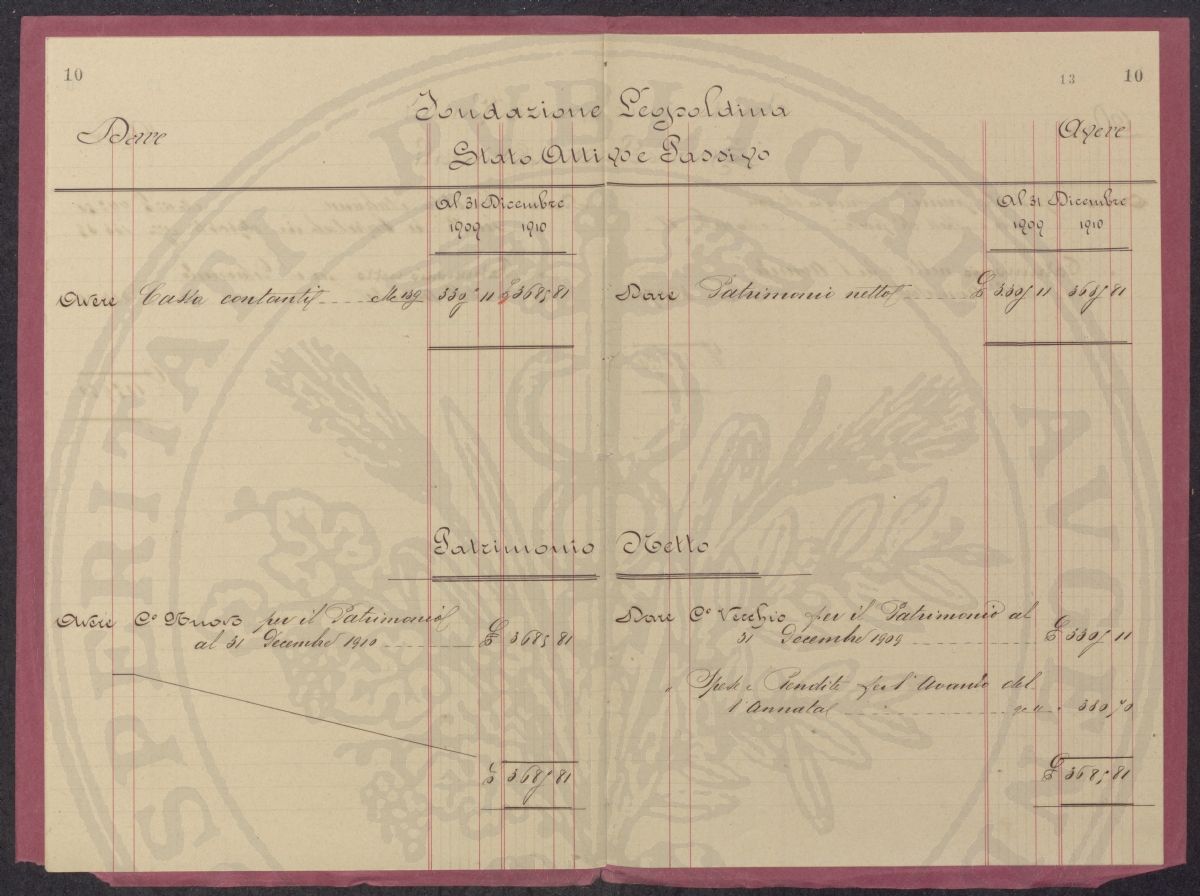 10
13 10
Fondazione Leopoldina
Dare
Avere
Stato Attivo e Passivo
Al 31 Dicembre
1909 1910
Al 31 Dicembre
1909 1910
Avere Cassa contanti 3305 11 £ 3685 81
Dare Patrimonio netto £ 3305 11 3685 81
Patrimonio Netto
Avere Co Nuovo per il Patrimonio
al 31 Decembre 1910 £ 3685 81
Dare Co Vecchio per il Patrimonio al
31 Decembre 1909 £ 3305 11
" Spese e Rendite per l'Avanzo del
l'Annata " 380 70
£ 3685 81
£ 3685 81